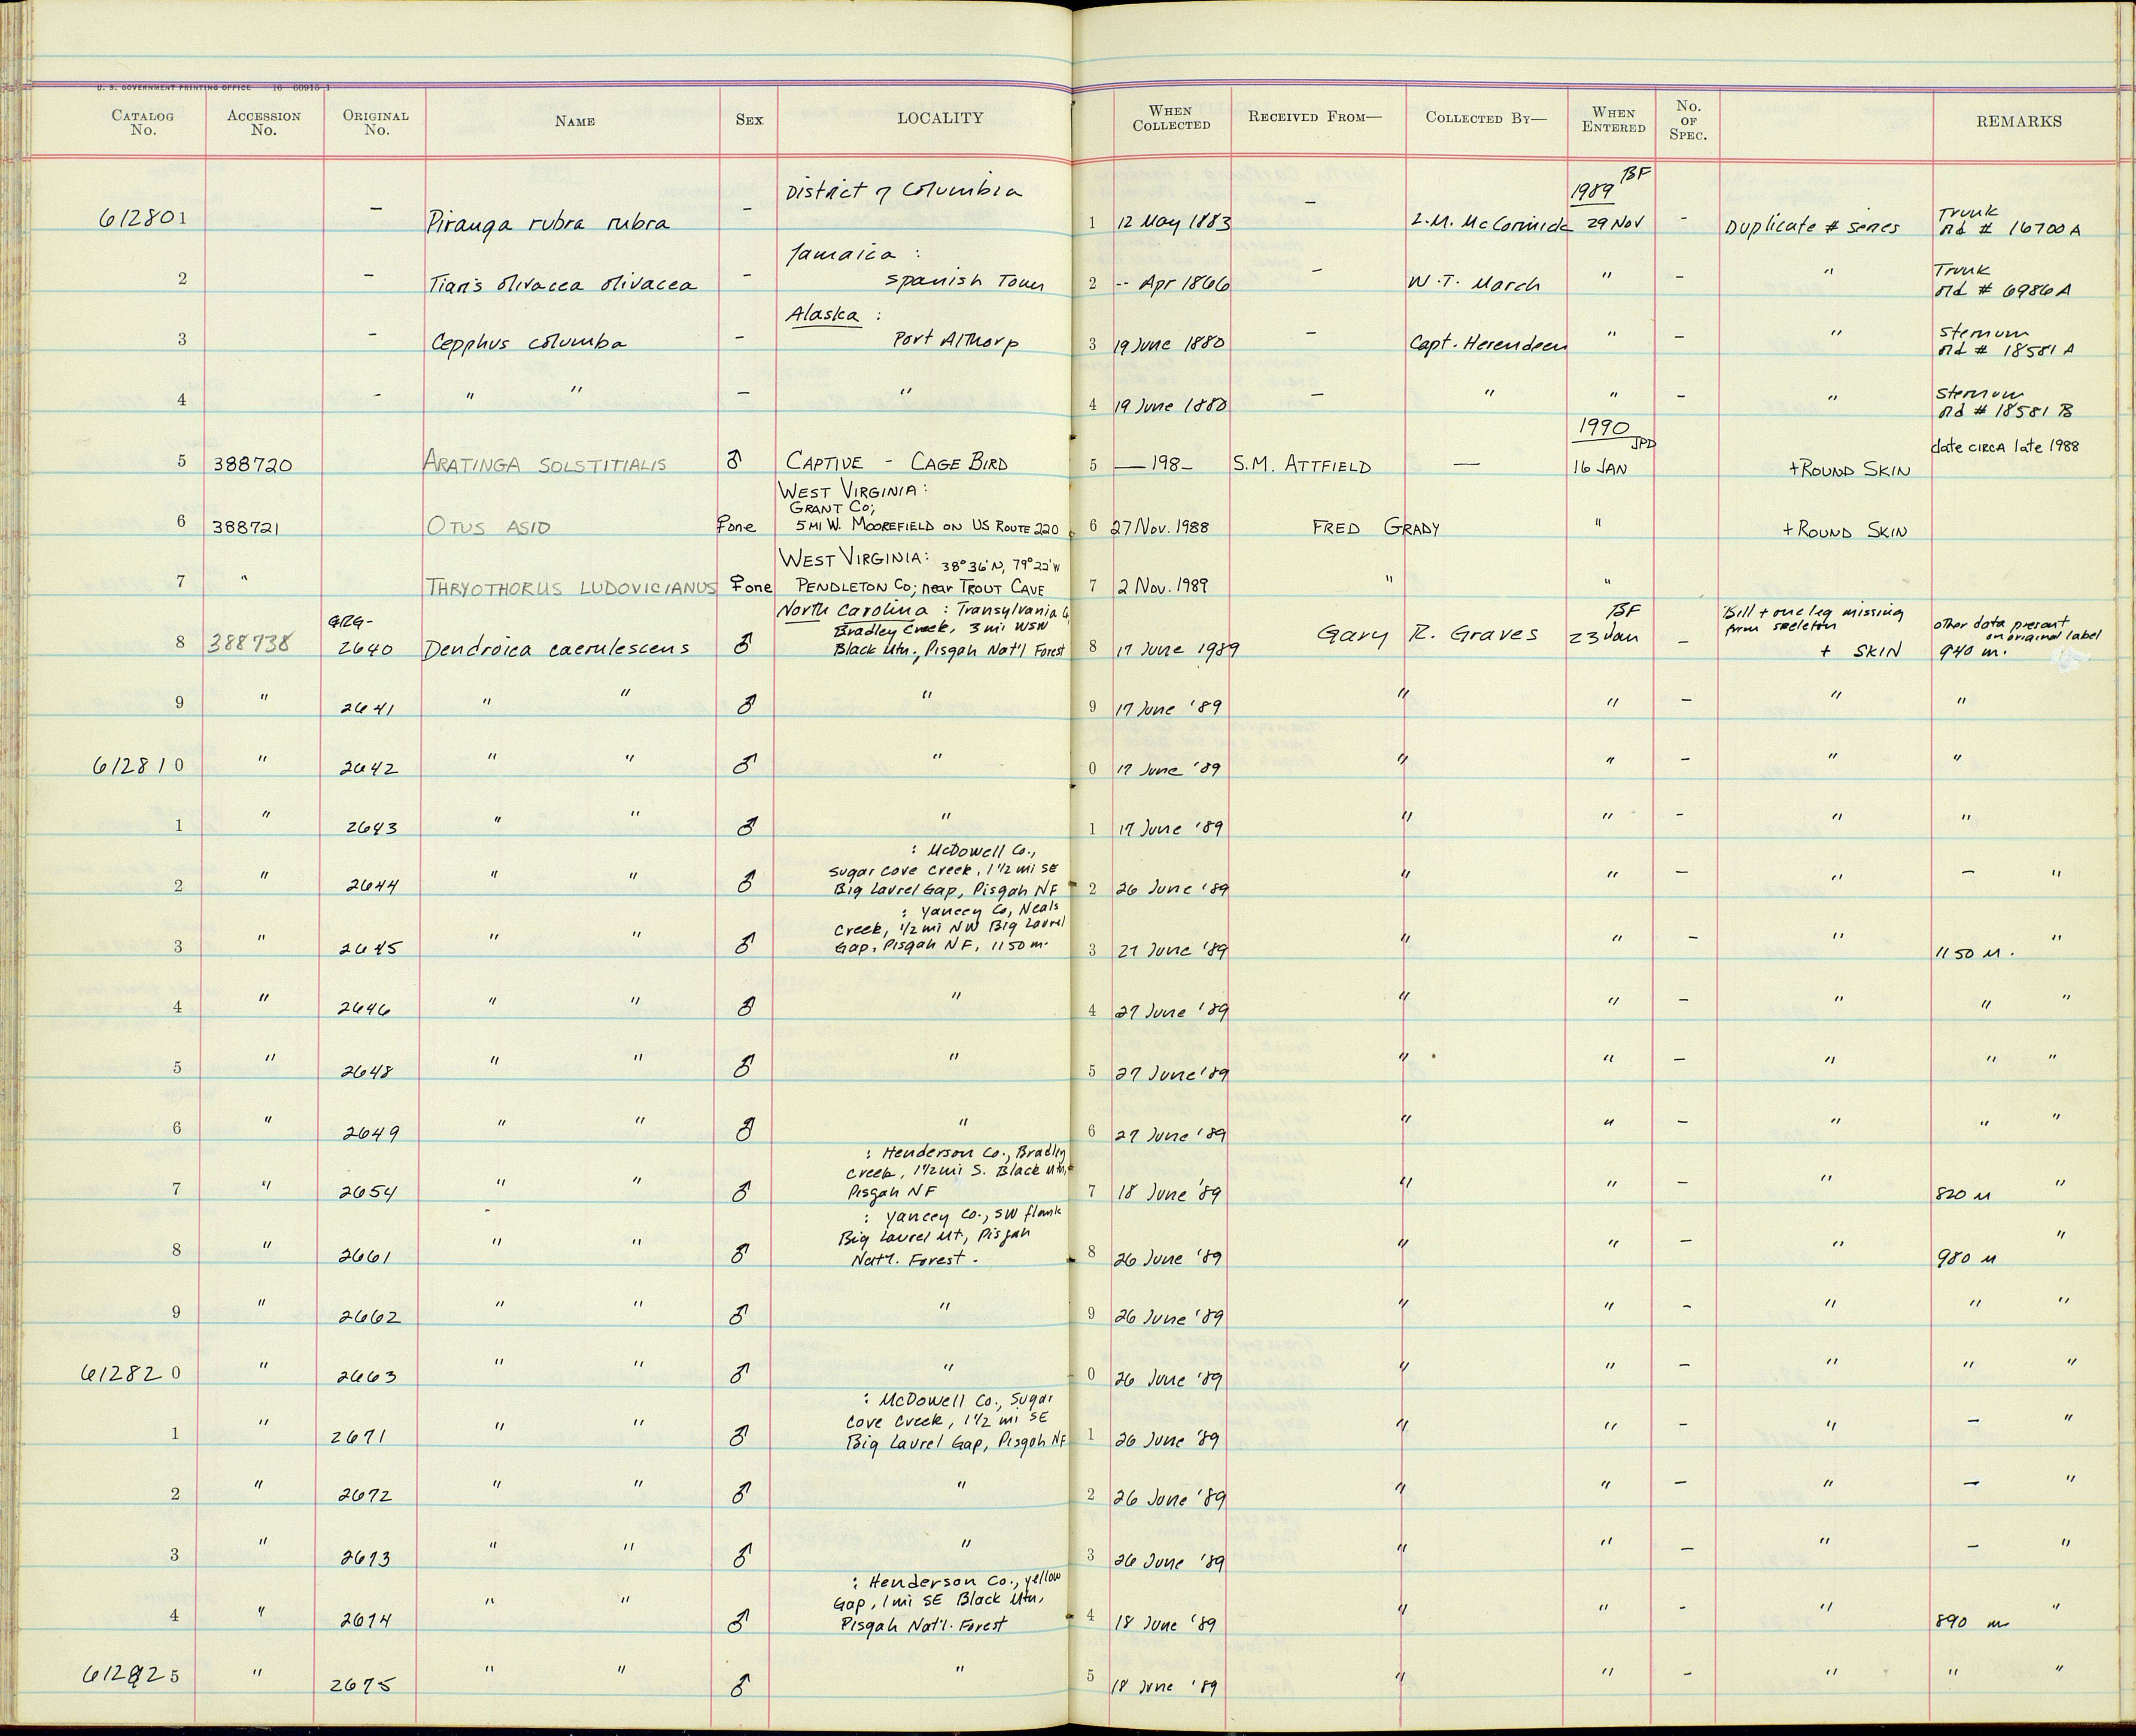 U. S. GOVERNMENT PRINTING OFFICE 16—60915-1
CATALOG No. ACCESSION No. ORIGINAL No. NAME SEX LOCALITY WHEN COLLECTED RECEIVED FROM— COLLECTED BY— WHEN ENTERED No. OF SPEC. REMARKS
District of Columbia 1989 BF
612801 – Piranga rubra rubra – 1 12 May 1883 – L.M. McCormick 29 Nov – Duplicate # series Trunk old # 16700 A
Jamaica :
2 – Tiaris olivacea olivacea – Spanish Town 2 -- Apr 1866 – W.T. March " – " Trunk old # 6986 A
Alaska :
3 – Cepphus columba – Port Althorp 3 19 June 1880 – Capt. Herendeen " – " Sternum old # 18581 A
4 – " " – " 4 19 June 1880 – " " – " Sternum old # 18581 B
1990 JPD
5 388720 ARATINGA SOLSTITIALIS ♂ CAPTIVE - CAGE BIRD 5 — 198– S.M. ATTFIELD — 16 JAN + ROUND SKIN date CIRCA late 1988
WEST VIRGINIA:
GRANT CO;
6 388721 OTUS ASIO ♀one 5 MI W. MOOREFIELD ON US ROUTE 220 6 27 Nov. 1988 FRED GRADY " + ROUND SKIN
WEST VIRGINIA: 38°36'N, 79°22'W
7 " THRYOTHORUS LUDOVICIANUS ♀one PENDLETON CO; near TROUT CAVE 7 2 Nov. 1989 " "
North Carolina : Transylvania Co,
Bradley Creek, 3 mi WSW
8 388738 GRG- 2640 Dendroica caerulescens ♂ Black Mtn., Pisgah Nat'l Forest 8 17 June 1989 Gary R. Graves BF 23 Jan – Bill + one leg missing from skeleton + SKIN other data present on original label 940 m.
9 " 2641 " " ♂ " 9 17 June '89 " " – " "
612810 " 2642 " " ♂ " 0 17 June '89 " " – " "
1 " 2643 " " ♂ " 1 17 June '89 " " – " "
: McDowell Co.,
Sugar Cove Creek, 1 1/2 mi SE
2 " 2644 " " ♂ Big Laurel Gap, Pisgah NF 2 26 June '89 " " – " – "
: Yancey Co, Neals
Creek, 1/2 mi NW Big Laurel
3 " 2645 " " ♂ Gap, Pisgah NF, 1150 m. 3 27 June '89 " " – " 1150 m. "
4 " 2646 " " ♂ " 4 27 June '89 " " – " " "
5 " 2648 " " ♂ " 5 27 June '89 " " – " " "
6 " 2649 " " ♂ " 6 27 June '89 " " – " " "
: Henderson Co., Bradley
Creek, 1 1/2 mi S. Black Mtn,
7 " 2654 " " ♂ Pisgah NF 7 18 June '89 " " – " 820 m "
: Yancey Co., SW flank
Big Laurel Mt, Pisgah
8 " 2661 " " ♂ Nat'l. Forest. 8 26 June '89 " " – " 980 m "
9 " 2662 " " ♂ " 9 26 June '89 " " – " " "
612820 " 2663 " " ♂ " 0 26 June '89 " " – " " "
: McDowell Co., Sugar
Cove Creek, 1 1/2 mi SE
1 " 2671 " " ♂ Big Laurel Gap, Pisgah NF 1 26 June '89 " " – " – "
2 " 2672 " " ♂ " 2 26 June '89 " " – " – "
3 " 2673 " " ♂ " 3 26 June '89 " " – " – "
: Henderson Co., Yellow
Gap, 1 mi SE Black Mtn,
4 " 2674 " " ♂ Pisgah Nat'l. Forest 4 18 June '89 " " – " 890 m "
612825 " 2675 " " ♂ " 5 18 June '89 " " – " " "